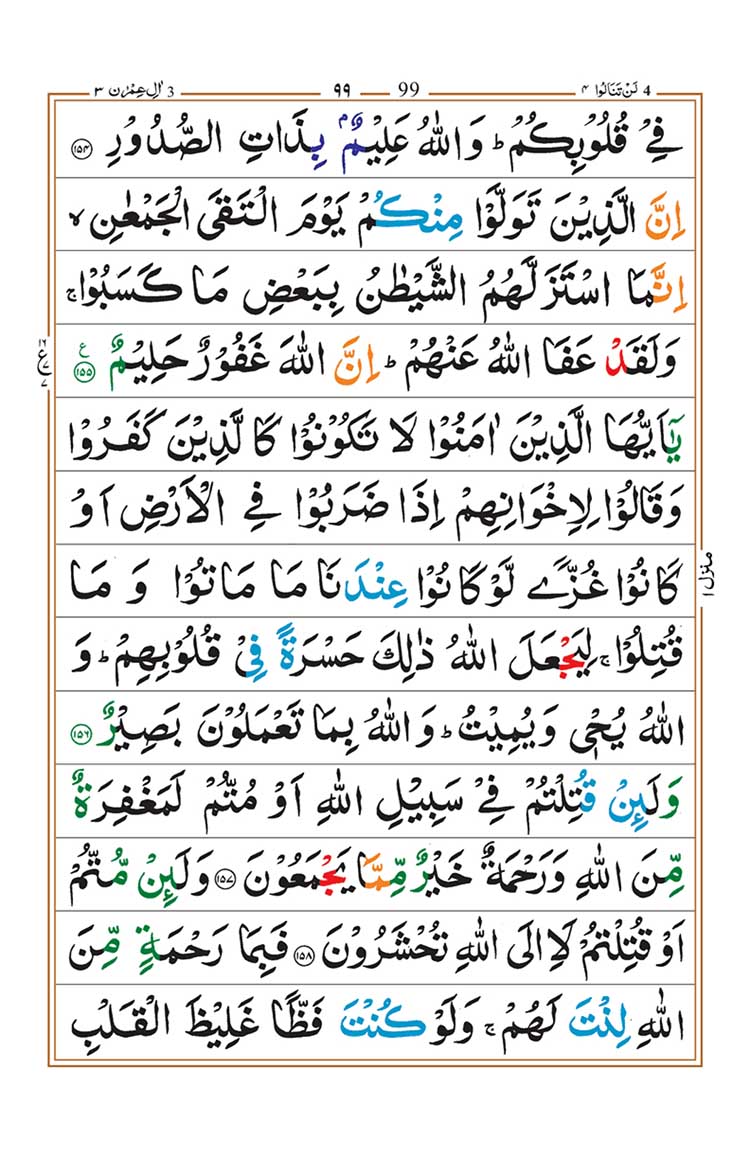 4 لَنْ تَنَالُوا ۴ 99 ۹۹ 3 اٰلِ عِمْرٰن ۳
فِیْ قُلُوْبِكُمْ ؕ وَاللّٰهُ عَلِیْمٌۢ بِذَاتِ الصُّدُوْرِ ﴿۱۵۴﴾
اِنَّ الَّذِیْنَ تَوَلَّوْا مِنْكُمْ یَوْمَ الْتَقَی الْجَمْعٰنِ ۙ
اِنَّمَا اسْتَزَلَّهُمُ الشَّیْطٰنُ بِبَعْضِ مَا كَسَبُوْا ۚ
وَلَقَدْ عَفَا اللّٰهُ عَنْهُمْ ؕ اِنَّ اللّٰهَ غَفُوْرٌ حَلِیْمٌ ﴿۱۵۵﴾ ع
یٰۤاَیُّهَا الَّذِیْنَ اٰمَنُوْا لَا تَكُوْنُوْا كَالَّذِیْنَ كَفَرُوْا
وَقَالُوْا لِاِخْوَانِهِمْ اِذَا ضَرَبُوْا فِی الْاَرْضِ اَوْ
كَانُوْا غُزًّی لَّوْ كَانُوْا عِنْدَنَا مَا مَاتُوْا وَ مَا
قُتِلُوْا ۚ لِیَجْعَلَ اللّٰهُ ذٰلِكَ حَسْرَةً فِیْ قُلُوْبِهِمْ ؕ وَ
اللّٰهُ یُحْیٖ وَیُمِیْتُ ؕ وَاللّٰهُ بِمَا تَعْمَلُوْنَ بَصِیْرٌ ﴿۱۵۶﴾
وَلَىِٕنْ قُتِلْتُمْ فِیْ سَبِیْلِ اللّٰهِ اَوْ مُتُّمْ لَمَغْفِرَةٌ
مِّنَ اللّٰهِ وَرَحْمَةٌ خَیْرٌ مِّمَّا یَجْمَعُوْنَ ﴿۱۵۷﴾ وَلَىِٕنْ مُّتُّمْ
اَوْ قُتِلْتُمْ لَاِالَی اللّٰهِ تُحْشَرُوْنَ ﴿۱۵۸﴾ فَبِمَا رَحْمَةٍ مِّنَ
اللّٰهِ لِنْتَ لَهُمْ ۚ وَلَوْ كُنْتَ فَظًّا غَلِیْظَ الْقَلْبِ
منزل ۱